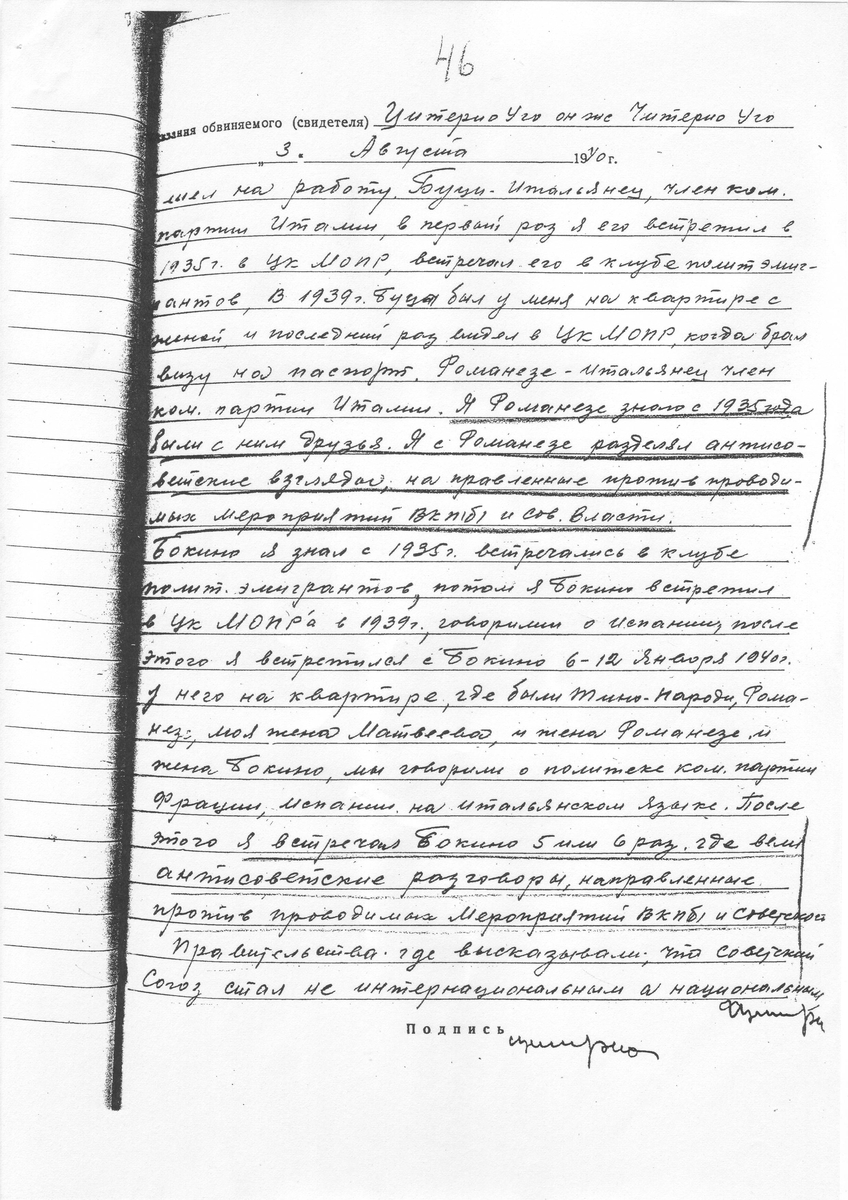 46
азания обвиняемого (свидетеля) Цитерио Уго он же Читерио Уго
„3“ Августа 1940 г.
шел на работу. Буци - Итальянец, член ком.
партии Италии, в первый раз я его встретил в
1935 г. в ЦК МОПР, встречал его в клубе политэмиг-
рантов, В 1939 г. Буци был у меня на квартире с
женой, и последний раз видел в ЦК МОПР, когда брал
визу на паспорт. Романезе - итальянец член
ком. партии Италии. Я Романезе знаю с 1935 года
были с ним друзья. Я с Романезе разделял антисо-
ветские взгляды, направленные против проводи-
мых мероприятий ВКП(б) и сов. власти.
Бокино я знал с 1935 г. встречались в клубе
полит. эмигрантов, потом я Бокино встретил
в ЦК МОПР'а в 1939 г., говорили о Испании, после
этого я встретился с Бокино 6-12 Января 1940 г.
у него на квартире, где были Тино-Народи, Рома-
незе, моя жена Матвеева, и жена Романезе и
жена Бокино, мы говорили о политеке ком. партии
Фрации, Испании. на итальянском языке. После
этого я встречал Бокино 5 или 6 раз. где вели
антисоветские разговоры, направленные
против проводимых мероприятий ВКП(б) и Советского
Правительства. где высказывали, что Советский
Союз стал не интернациональным а национальным
Подпись